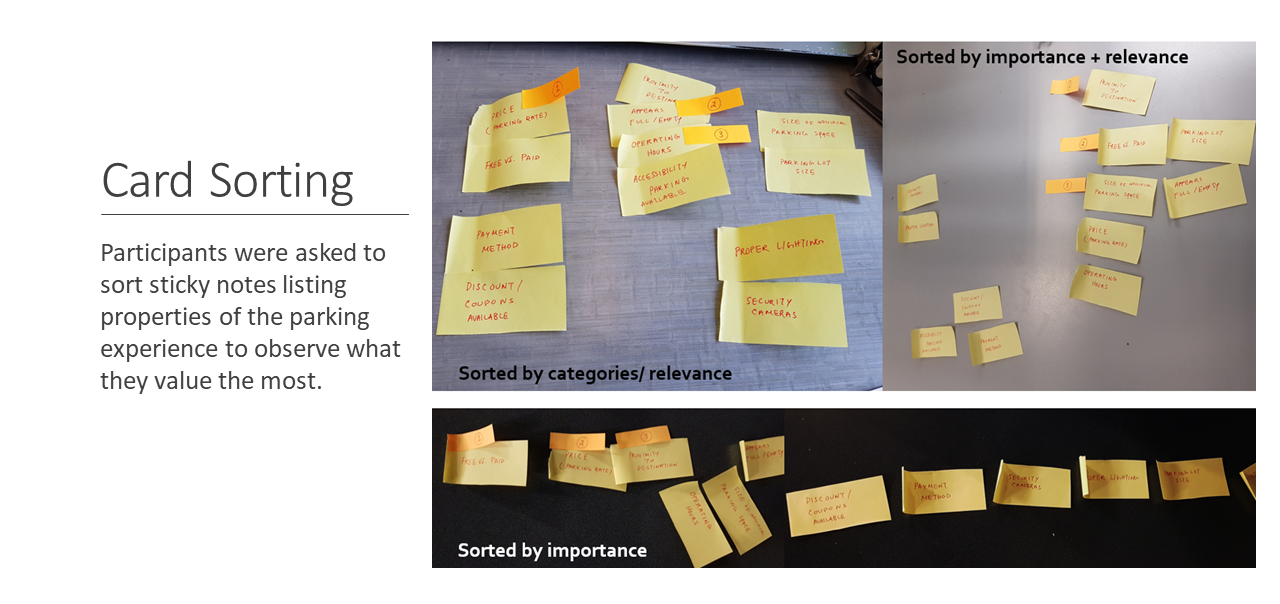 Card Sorting
Participants were asked to
sort sticky notes listing
properties of the parking
experience to observe what
they value the most.
1
PRICE
(PARKING RATE)
FREE VS. PAID
PROXIMITY
TO
2
APPEARS
FULL/EMPTY
3
OPERATING
HOURS
ACCESSIBILITY
PARKING
AVAILABLE
SIZE OF INDIVIDUAL
PARKING SPACE
PARKING LOT
SIZE
PAYMENT
METHOD
DISCOUNT/
COUPONS
AVAILABLE
PROPER LIGHTING
SECURITY
CAMERAS
Sorted by categories/ relevance
Sorted by importance + relevance
1
PROXIMITY
TO
DESTINATION
2
FREE VS. PAID
PARKING LOT
SIZE
3
SIZE OF INDIVIDUAL
PARKING SPACE
APPEARS
FULL/EMPTY
PRICE
(PARKING RATE)
OPERATING
HOURS
DISCOUNT/
COUPONS
PAYMENT
METHOD
1
FREE VS. PAID
2
PRICE
(PARKING RATE)
3
PROXIMITY
TO
DESTINATION
OPERATING
HOURS
SIZE OF INDIVIDUAL
PARKING SPACE
APPEARS
FULL/EMPTY
DISCOUNT/
COUPONS
AVAILABLE
PAYMENT
METHOD
SECURITY
CAMERAS
PER LIGHTING
PARKING LOT
SIZE
Sorted by importance